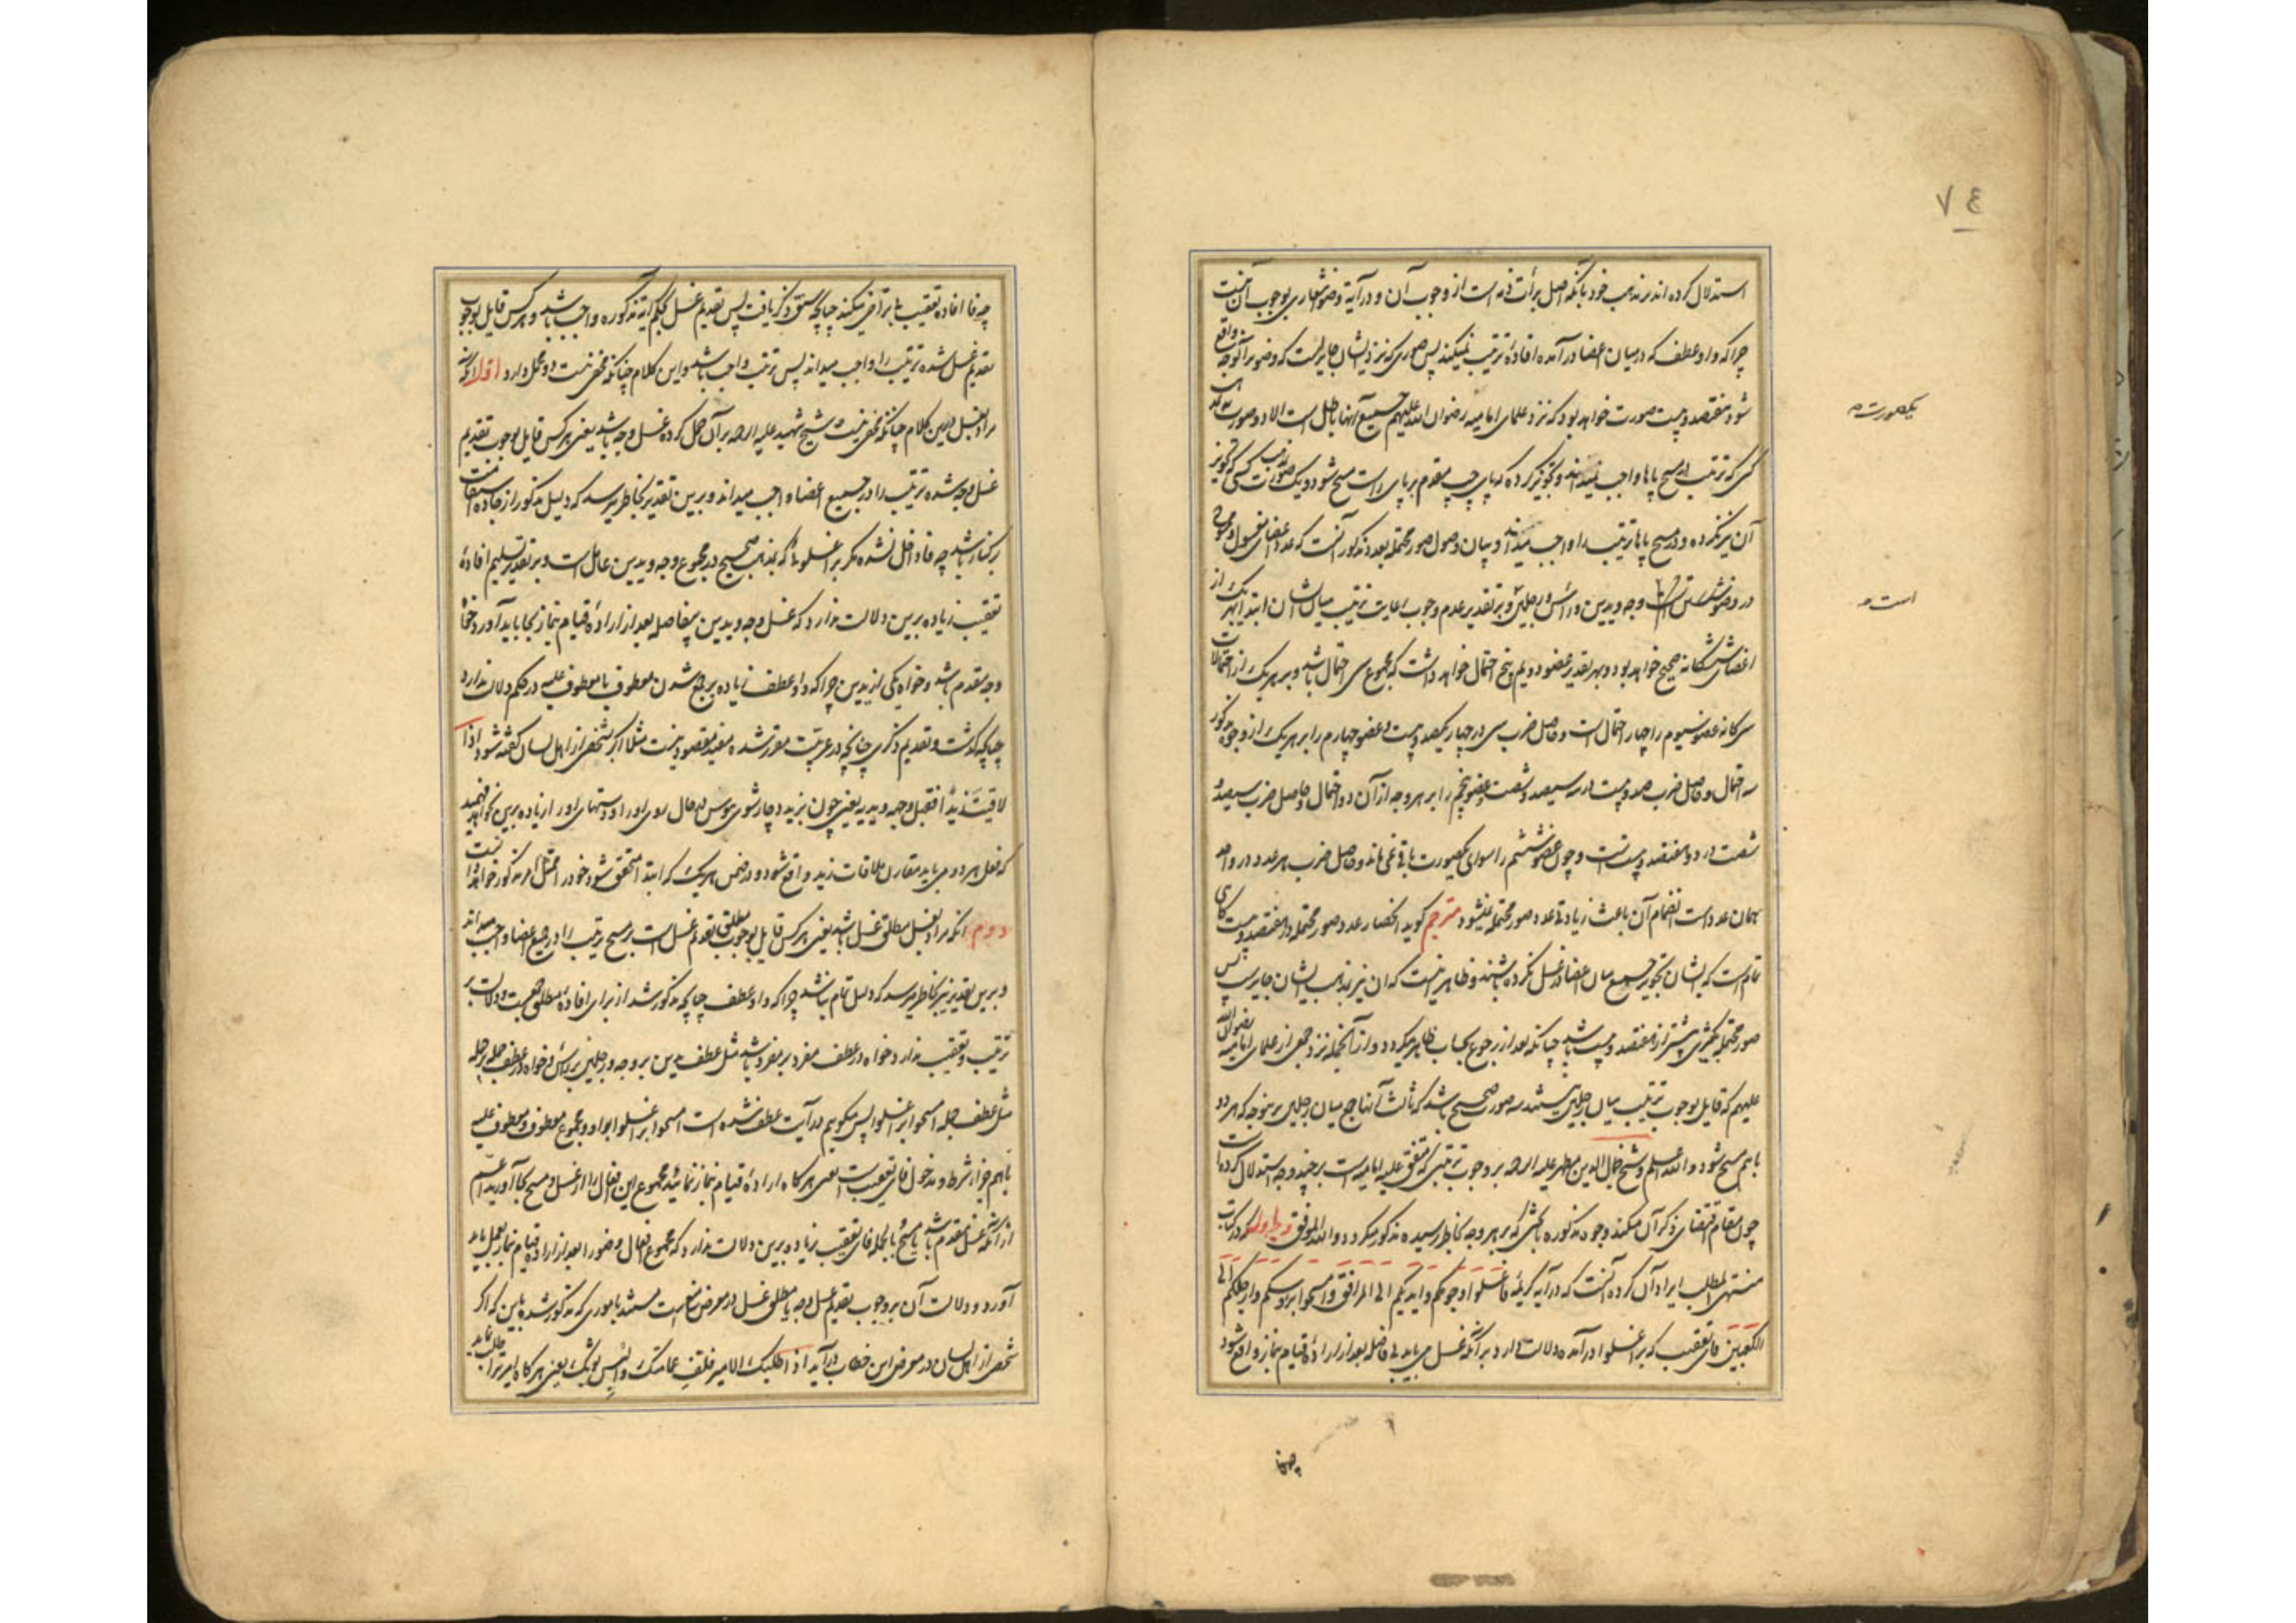 ٧٤
استدلال کرده اند بر مذهب خود بآنکه اصل برأت ذمه است از وجوب آن و در آیهٔ وضو اشعاری بوجوب آن نیست
چرا که واو عطف که در میان اعضا در آمده افادهٔ ترتیب نمیکند پس صوری که نزد ایشان جایز است که وضو بر آنوجه واقع
شود هفتصد و بیست صورت خواهد بود که نزد علمای امامیه رضوان الله علیهم جمیع آنها باطل است الا دو صورت
یکصورت
کسی که ترتیب در مسح پاها واجب نمیداند و تجویز کرده که پای چپ مقدم بر پای راست مسح شود و یک صورت کسی که تجویز
آن نیز نکرده و در مسح پاها ترتیب را واجب میداند و بیان وصول صور محتمله بعدد مذکور آنست که عدد اعضای مغسول و ممسوح
در وضو شش است وجه و یدین و رأس و رجلین و بر تقدیر عدم وجوب رعایت ترتیب میان ایشان ابتدا بهر یک از
است
اعضای ششگانه صحیح خواهد بود و بهر تقدیر عضو دویم پنج احتمال خواهد داشت که مجموع سی احتمال باشد و بر هر یک از احتمالات
سی گانه عضو سیوم را چهار احتمال است و حاصل ضرب سی در چهار یکصد و بیست و عضو چهارم را بر هر یک از وجوه مذکور
سه احتمال و حاصل ضرب صد و بیست در سه سیصد و شصت و عضو پنجم را بر هر وجه از آن دو احتمال و حاصل ضرب سیصد و
شصت در دو هفتصد و بیست است و چون عضو ششم را سوای یکصورت باقی نمی ماند و حاصل ضرب هر عدد در واحد
همان عدد است انضمام آن باعث زیادتی عدد صور محتمله نمیشود مترجم گوید انحصار عدد صور محتمله در هفتصد و بیست گاهی
تمام است که ایشان تجویز جمع میان اعضا در غسل نکرده باشند و ظاهر نیست که آن نیز بمذهب ایشان جایز است پس
صور محتمله بکثیری بیشتر از هفتصد و بیست باشد چنانکه بعد از رجوع بحساب ظاهر میگردد و از آنجمله نزد جمعی از علمای امامیه رضوان الله
علیهم که قایل بوجوب ترتیب میان رجلین نیستند سه صورت صحیح باشد که ثالث آنها جمع میان رجلین بر نحوی که هر دو
باهم مسح شود و الله اعلم و شیخ جمال الدین مطهر علیه الرحمه بر وجوب ترتیبی که متفق علیه امامیه است بر چند وجه استدلال کرده است
چون مقام اقتضای ذکر آن میکند وجوه مذکوره با بحثی که بر هر وجه بخاطر رسیده مذکور میگردد و الله الموفق وجه اول که در کتاب
منتهی المطلب ایراد آن کرده آنست که در آیه کریمهٔ فاغسلوا وجوهکم وایدیکم الی المرافق وامسحوا برؤسکم وارجلکم الی
الکعبین فای تعقیب که بر اغسلوا در آمده دلالت دارد بر آنکه غسل می باید بی فاصله بعد از ارادهٔ قیام نماز واقع شود
چه فا افاده تعقیب بلا تراخی میکند چنانچه سبق ذکر یافت پس تقدیم غسل بحکم آیه مذکوره واجب باشد و هر کس قایل بوجوب
تقدیم غسل شده ترتیب را واجب میداند پس ترتیب واجب باشد و این کلام چنانکه مخفی نیست دو محمل دارد اول آنکه
مراد بغسل درین کلام چنانکه مخفی نیست و شیخ شهید علیه الرحمه بر آن حمل کرده غسل وجه باشد یعنی هر کس قایل بوجوب تقدیم
غسل وجه شده ترتیب را در جمیع اعضا واجب میداند و برین تقدیر بخاطر میرسد که دلیل مذکور از جاده استقامت
بر کنار باشد چه فا داخل نشده مگر بر اغسلوا که بمذهب صحیح در مجموع وجه و یدین عامل است و بر تقدیر تسلیم افادهٔ
تعقیب زیاده برین دلالت ندارد که غسل وجه و یدین بیفاصله بعد از ارادهٔ قیام نماز بجا باید آورد خواه
وجه مقدم باشد و خواه یکی از یدین چرا که واو عطف زیاده بر جمع شدن معطوف با معطوف علیه در حکم دلالت ندارد
چنانچه گذشت و تقدیم ذکری چنانچه در عربیت مقرر شده مفید مقصود نیست مثلا اگر شخصی از اهل لسان گفته شود اذا
لاقیت زیداً فقبل وجهه ویدیه یعنی چون بزید دچار شوی ببوس در حال روی او را و دستهای او را زیاده برین نخواهد فهمید
که فعل هر دو می باید مقارن ملاقات زید واقع شود و در ضمن هر یک که ابتدا متحقق شود خود را ممتثل امر مذکور خواهد دانست
دوم آنکه مراد بغسل مطلق غسل باشد یعنی هر کس قایل بوجوب تقدیم مطلق غسل است بر مسح ترتیب را در جمیع اعضا واجب میداند
و برین تقدیر نیز بخاطر میرسد که دلیل تمام نباشد چرا که واو عطف چنانچه مذکور شد از برای افادهٔ مطلق جمعیت و دلالت بر
ترتیب و تعقیب ندارد خواه در عطف مفرد بر مفرد باشد مثل عطف یدین بر وجه و رجلین بر رأس و خواه در عطف جمله بر جمله
مثل عطف جمله امسحوا بر اغسلوا پس میگوییم در آیت عطف شده است امسحوا بر اغسلوا بواو و مجموع معطوف و معطوف علیه
باهم جزاء شرط و مدخول فای تعقیب است یعنی هر گاه ارادهٔ قیام نماز نمائید مجموع این افعال را از غسل و مسح بجا آورید اعم
از آنکه غسل مقدم باشد یا مسح بالجمله فای تعقیب زیاده برین دلالت ندارد که مجموع افعال وضو را بعد از اراده قیام نماز بعمل باید
آورد و دلالت آن بر وجوب تقدیم غسل وجه یا مطلق غسل در معرض منع است مستند باموری که مذکور شده باین که اگر
شخصی از اهل لسان در معرض این خطاب در آید اذا طلبک الامیر فلتف عمامتک والبس ثوبک یعنی هر گاه امیر ترا طلب نماید